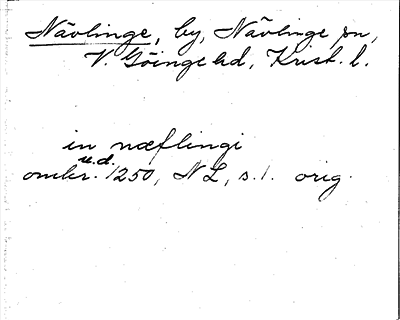 Nävlinge, by, Nävlinge sn,
V. Göinge hd, Krist. l.
in næflingi
u.d.
omkr. 1250, NL, s. 1. orig.